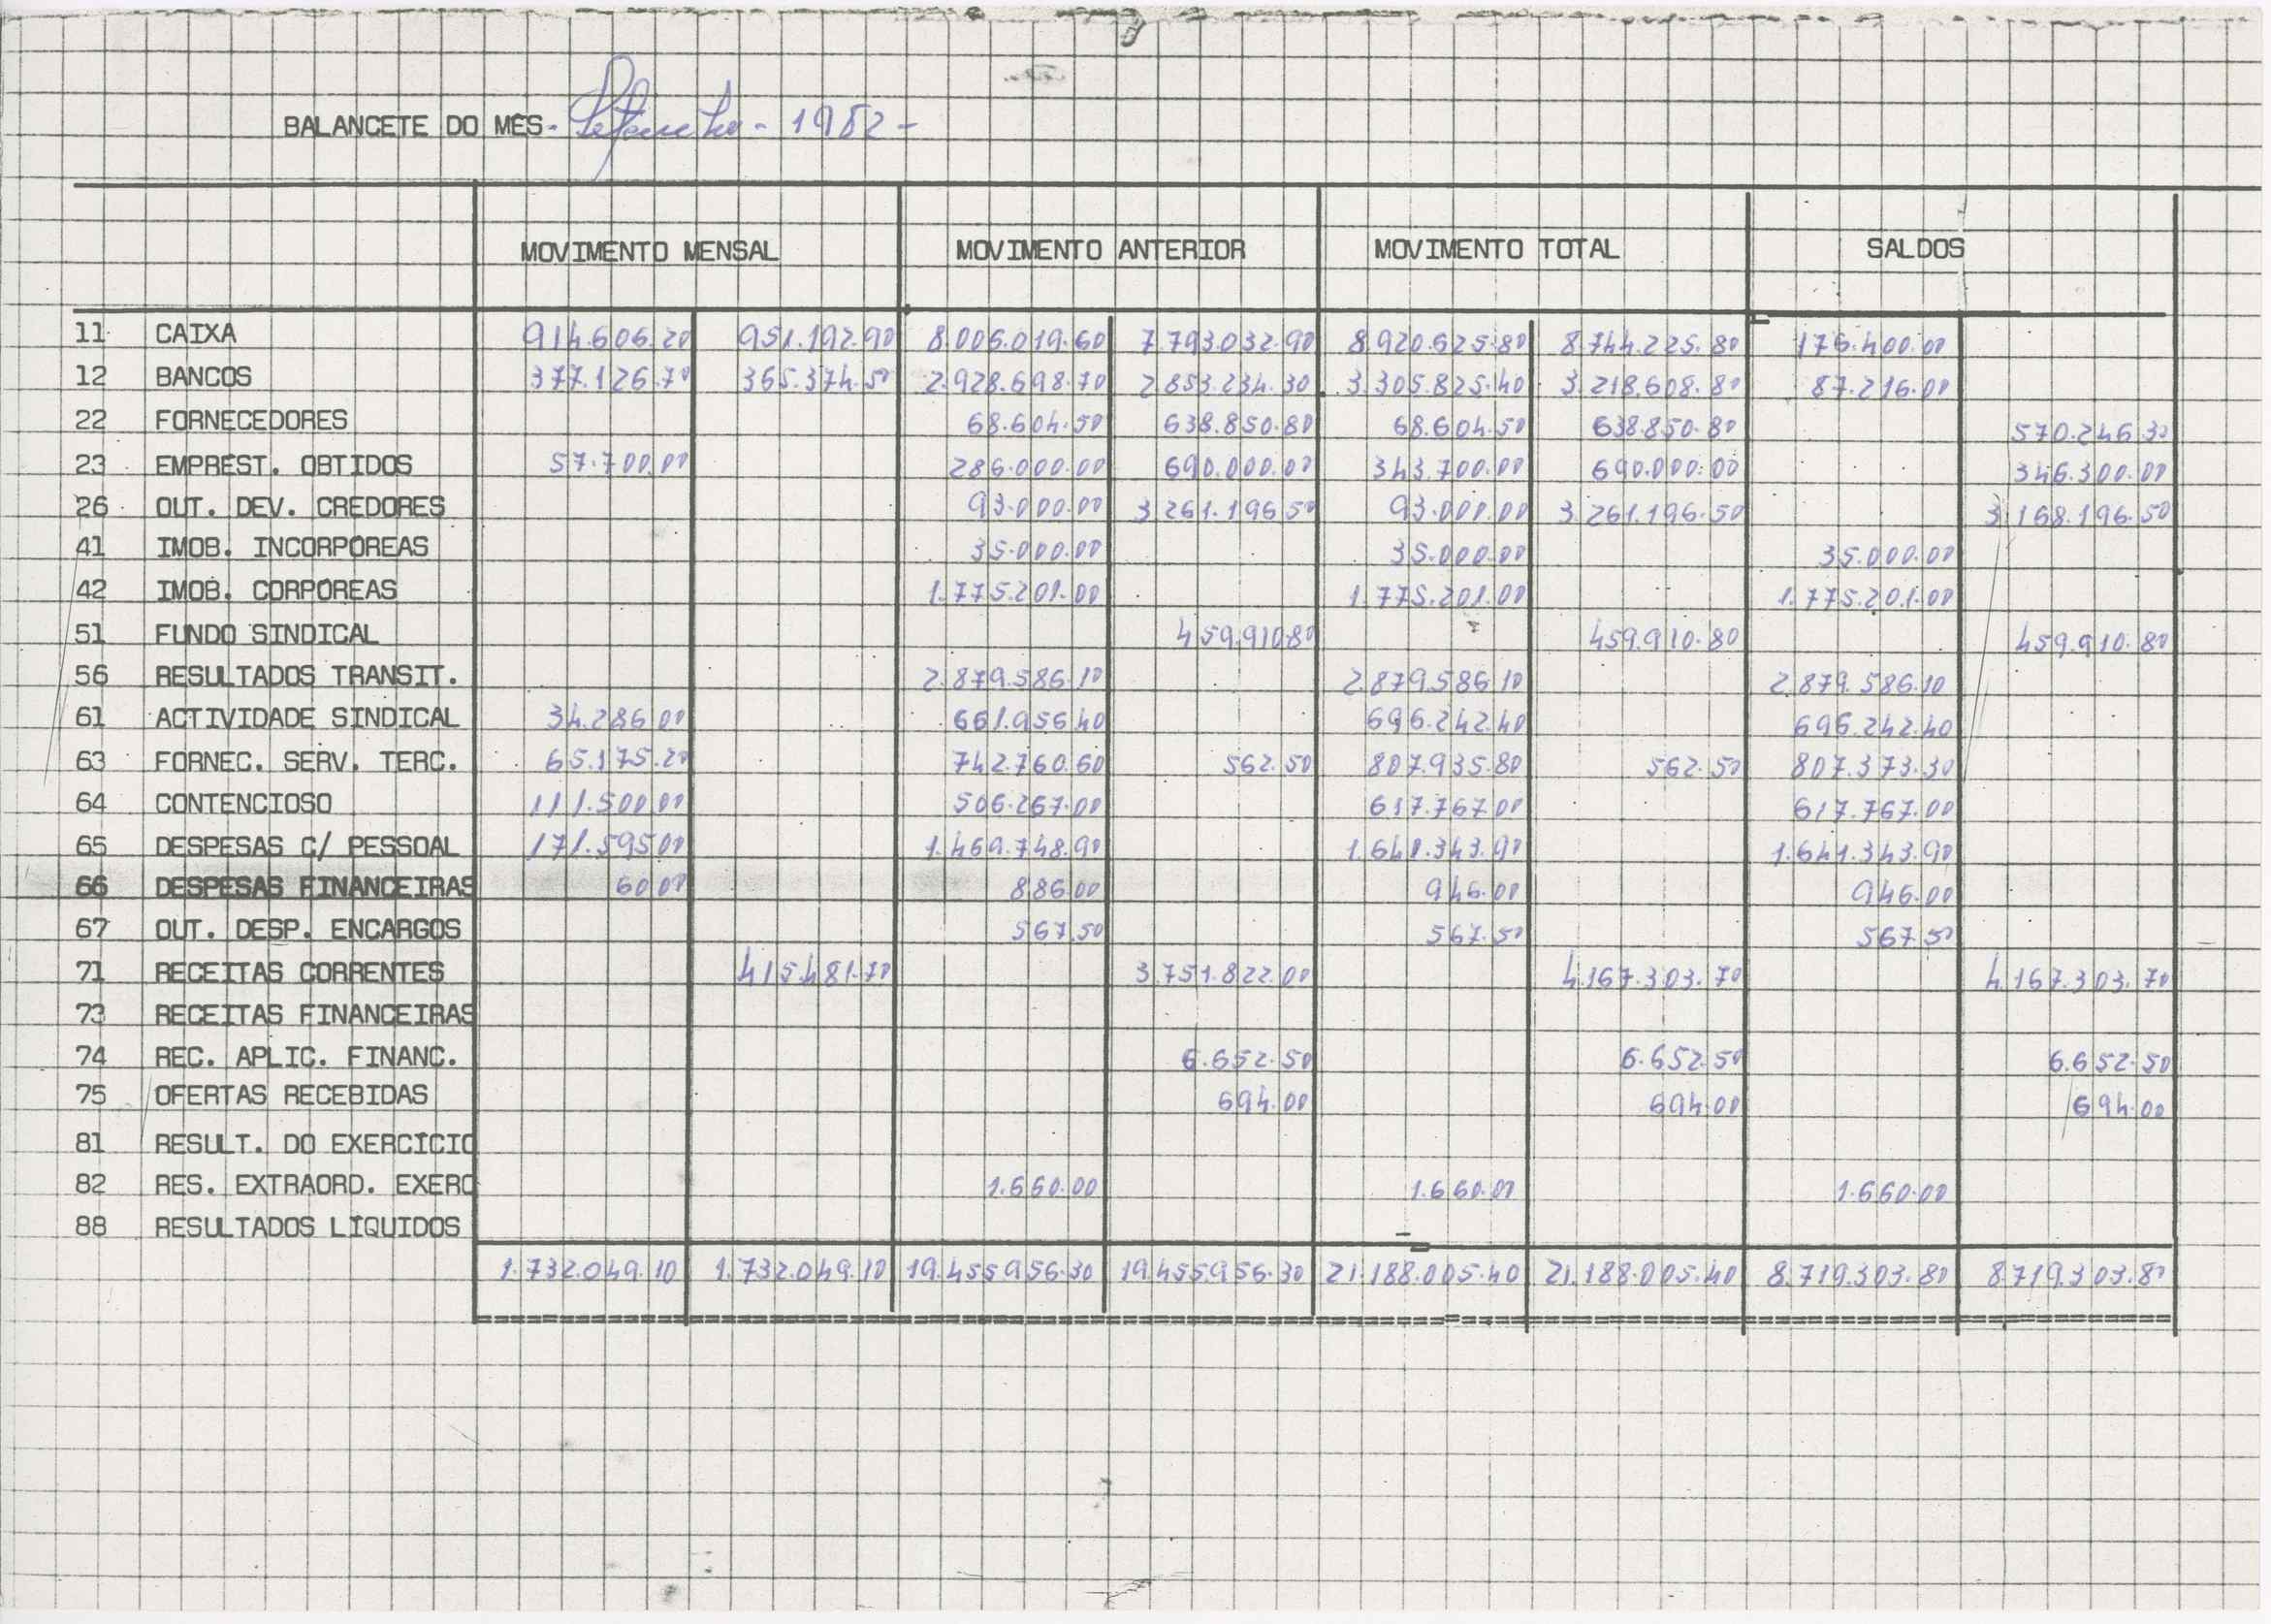 BALANCETE DO MÊS - Setembro - 1982 -
MOVIMENTO MENSAL MOVIMENTO ANTERIOR MOVIMENTO TOTAL SALDOS
11 CAIXA 914.606.20 951.192.90 8.006.019.60 7.793.032.90 8.920.625.80 8.744.225.80 176.400.00
12 BANCOS 377.126.70 365.374.50 2.928.698.70 2.853.234.30 3.305.825.40 3.218.608.80 87.216.00
22 FORNECEDORES 68.604.50 638.850.80 68.604.50 638.850.80 570.246.30
23 EMPRÉST. OBTIDOS 57.700.00 286.000.00 690.000.00 343.700.00 690.000.00 346.300.00
26 OUT. DEV. CREDORES 93.000.00 3.261.196.50 93.000.00 3.261.196.50 3.168.196.50
41 IMOB. INCORPÓREAS 35.000.00 35.000.00 35.000.00
42 IMOB. CORPÓREAS 1.775.201.00 1.775.201.00 1.775.201.00
51 FUNDO SINDICAL 459.910.80 459.910.80 459.910.80
56 RESULTADOS TRANSIT. 2.879.586.10 2.879.586.10 2.879.586.10
61 ACTIVIDADE SINDICAL 34.286.00 661.956.40 696.242.40 696.242.40
63 FORNEC. SERV. TERC. 65.175.20 742.760.60 562.50 807.935.80 562.50 807.373.30
64 CONTENCIOSO 111.500.00 506.267.00 617.767.00 617.767.00
65 DESPESAS C/ PESSOAL 171.595.00 1.469.748.90 1.641.343.90 1.641.343.90
66 DESPESAS FINANCEIRAS 60.00 886.00 946.00 946.00
67 OUT. DESP. ENCARGOS 567.50 567.50 567.50
71 RECEITAS CORRENTES 415.481.70 3.751.822.00 4.167.303.70 4.167.303.70
73 RECEITAS FINANCEIRAS
74 REC. APLIC. FINANC. 6.652.50 6.652.50 6.652.50
75 OFERTAS RECEBIDAS 694.00 694.00 694.00
81 RESULT. DO EXERCÍCIO
82 RES. EXTRAORD. EXERC 1.660.00 1.660.00 1.660.00
88 RESULTADOS LÍQUIDOS
1.732.049.10 1.732.049.10 19.455.956.30 19.455.956.30 21.188.005.40 21.188.005.40 8.719.303.80 8.719.303.80